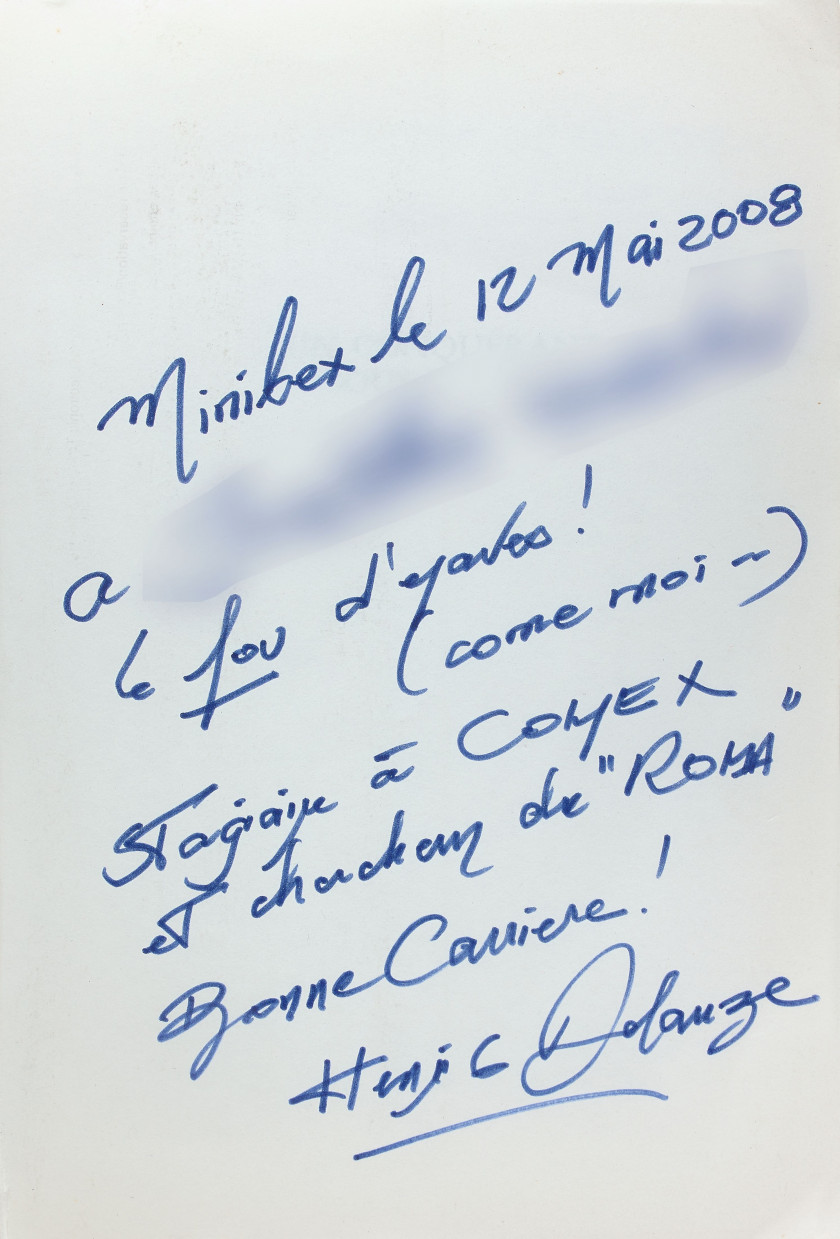 Minibex le 12 Mai 2008
a
le fou d'epaves !
(come moi --)
Stagiaire à COMEX
et du "ROMA"
Bonne Carriere !
Henri G Delauze